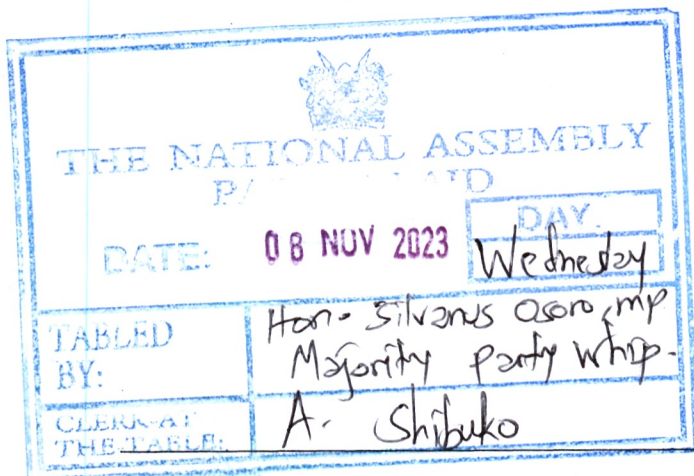 THE NATIONAL ASSEMBLY
DATE: 08 NOV 2023
DAY.
Wednesday
TABLED BY:
Hon. Silvanus Osoro, mp
Majority party whip.
CLERK-AT THE-TABLE:
A. Shibuko